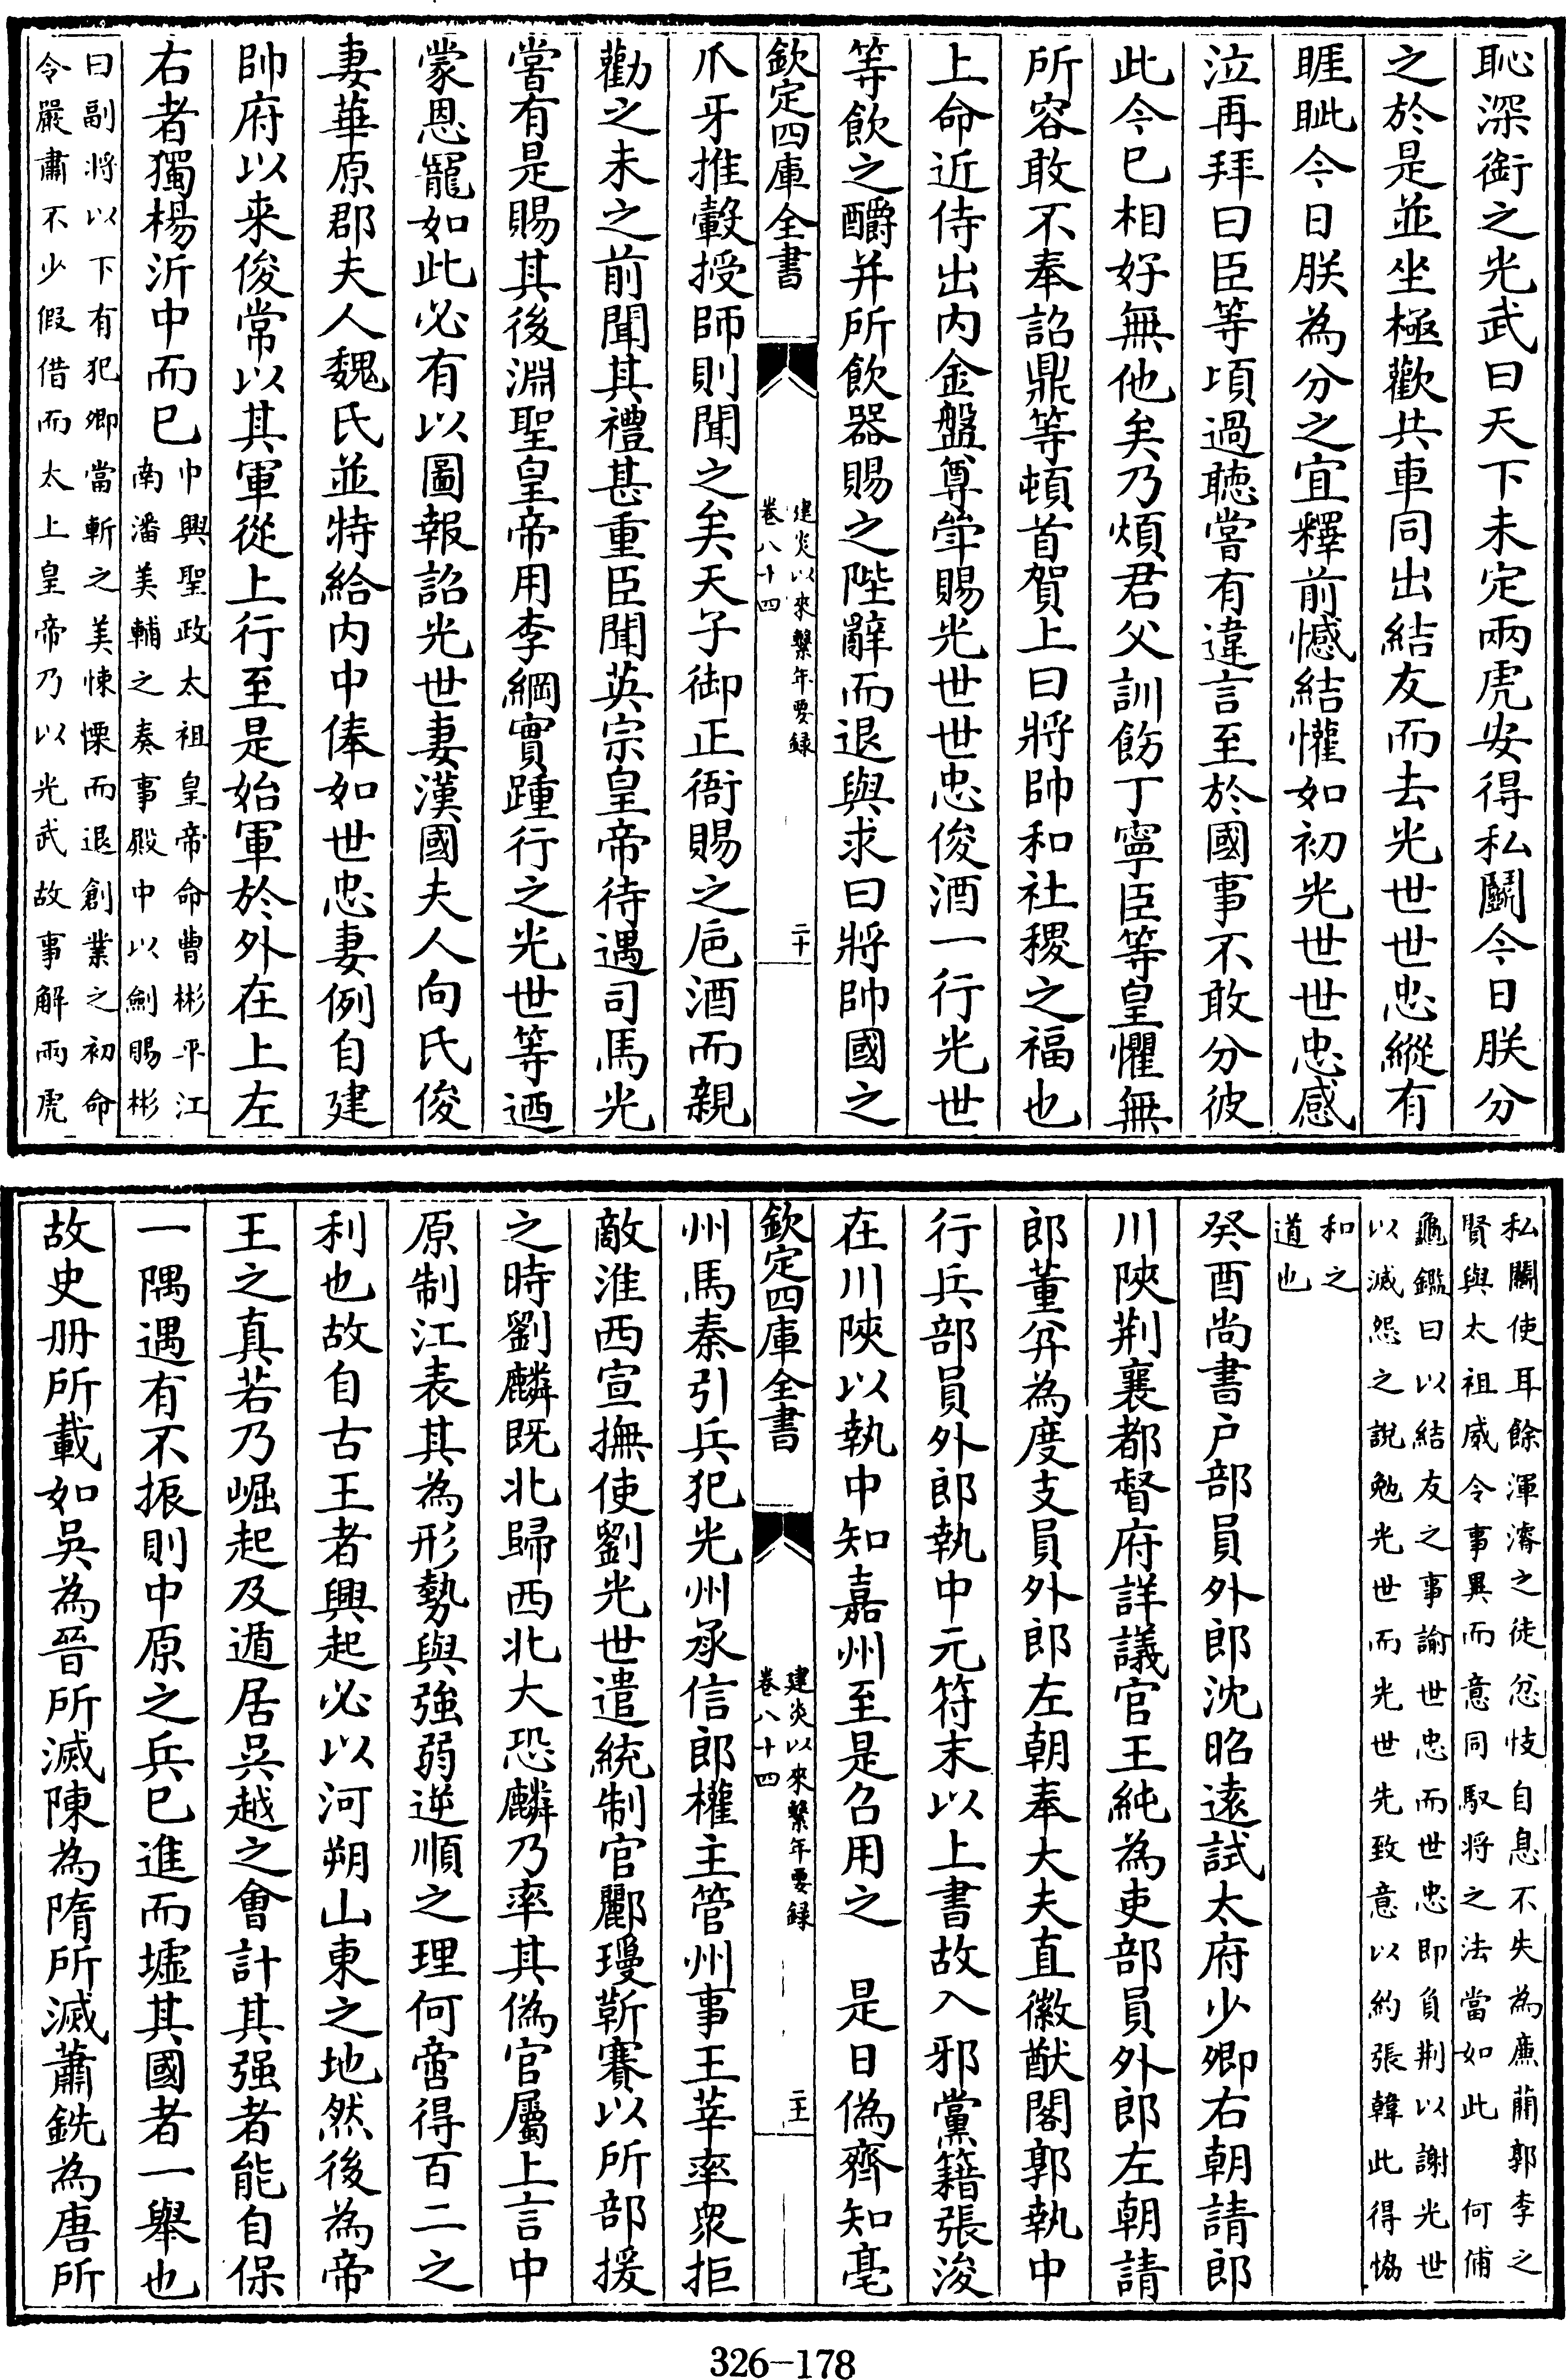 恥深銜之光武曰天下未定兩虎安得私鬭今日朕分
之於是並坐極歡共車同出結友而去光世世忠縱有
睚眦今日朕為分之宜釋前憾結懽如初光世世忠感
泣再拜曰臣等頃過聽嘗有違言至於國事不敢分彼
此今已相好無他矣乃煩君父訓飭丁寧臣等皇懼無
所容敢不奉詔鼎等頓首賀上曰將帥和社稷之福也
上命近侍出内金盤尊斝賜光世世忠俊酒一行光世
等飲之釂并所飲器賜之陛辭而退與求曰將帥國之
欽定四庫全書
建炎以來繫年要録
卷八十四
二十
爪牙推轂授師則聞之矣天子御正衙賜之巵酒而親
勸之未之前聞其禮甚重臣聞英宗皇帝待遇司馬光
嘗有是賜其後淵聖皇帝用李綱實踵行之光世等迺
蒙恩寵如此必有以圖報詔光世妻漢國夫人向氏俊
妻華原郡夫人魏氏並特給内中俸如世忠妻例自建
帥府以来俊常以其軍從上行至是始軍於外在上左
右者獨楊沂中而已
巾興聖政太祖皇帝命曹彬平江
南潘美輔之奏事殿中以劍賜彬
曰副將以下有犯卿當斬之美悚慄而退創業之初命
令嚴肅不少假借而太上皇帝乃以光武故事解兩虎
私鬭使耳餘渾濬之徒忿忮自息不失為廉藺郭李之
賢與太祖威令事異而意同馭將之法當如此 何俌
龜鑑曰以結友之事諭世忠而世忠即負荆以謝光世
以滅怨之說勉光世而光世先致意以約張韓此得協
和之
道也
癸酉尚書户部員外郎沈昭遠試太府少卿右朝請郎
川陝荆襄都督府詳議官王純為吏部員外郎左朝請
郎董弅為度支員外郎左朝奉大夫直徽猷閣郭執中
行兵部員外郎執中元符末以上書故入邪黨籍張浚
在川陝以執中知嘉州至是召用之 是日偽齊知亳
欽定四庫全書
建炎以來繫年要録
卷八十四
二十一
州馬秦引兵犯光州承信郎權主管州事王莘率衆拒
敵淮西宣撫使劉光世遣統制官酈瓊靳賽以所部援
之時劉麟既北歸西北大恐麟乃率其偽官屬上言中
原制江表其為形勢與強弱逆順之理何啻得百二之
利也故自古王者興起必以河朔山東之地然後為帝
王之真若乃崛起及遁居吳越之會計其强者能自保
一隅遇有不振則中原之兵已進而墟其國者一舉也
故史册所載如吳為晉所滅陳為隋所滅蕭銑為唐所
326-178